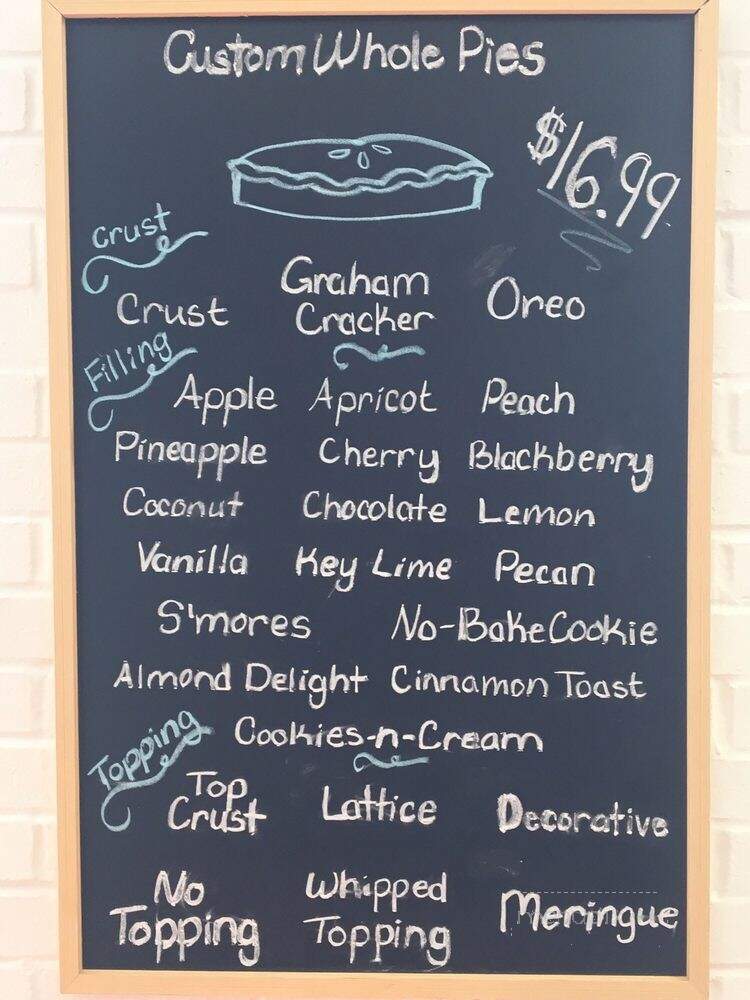 Custom Whole Pies
$16.99
Crust
Crust Graham Cracker Oreo
Filling
Apple Apricot Peach
Pineapple Cherry Blackberry
Coconut Chocolate Lemon
Vanilla Key Lime Pecan
S'mores No-Bake Cookie
Almond Delight Cinnamon Toast
Cookies-n-Cream
Topping
Top Crust Lattice Decorative
No Topping Whipped Topping Meringue